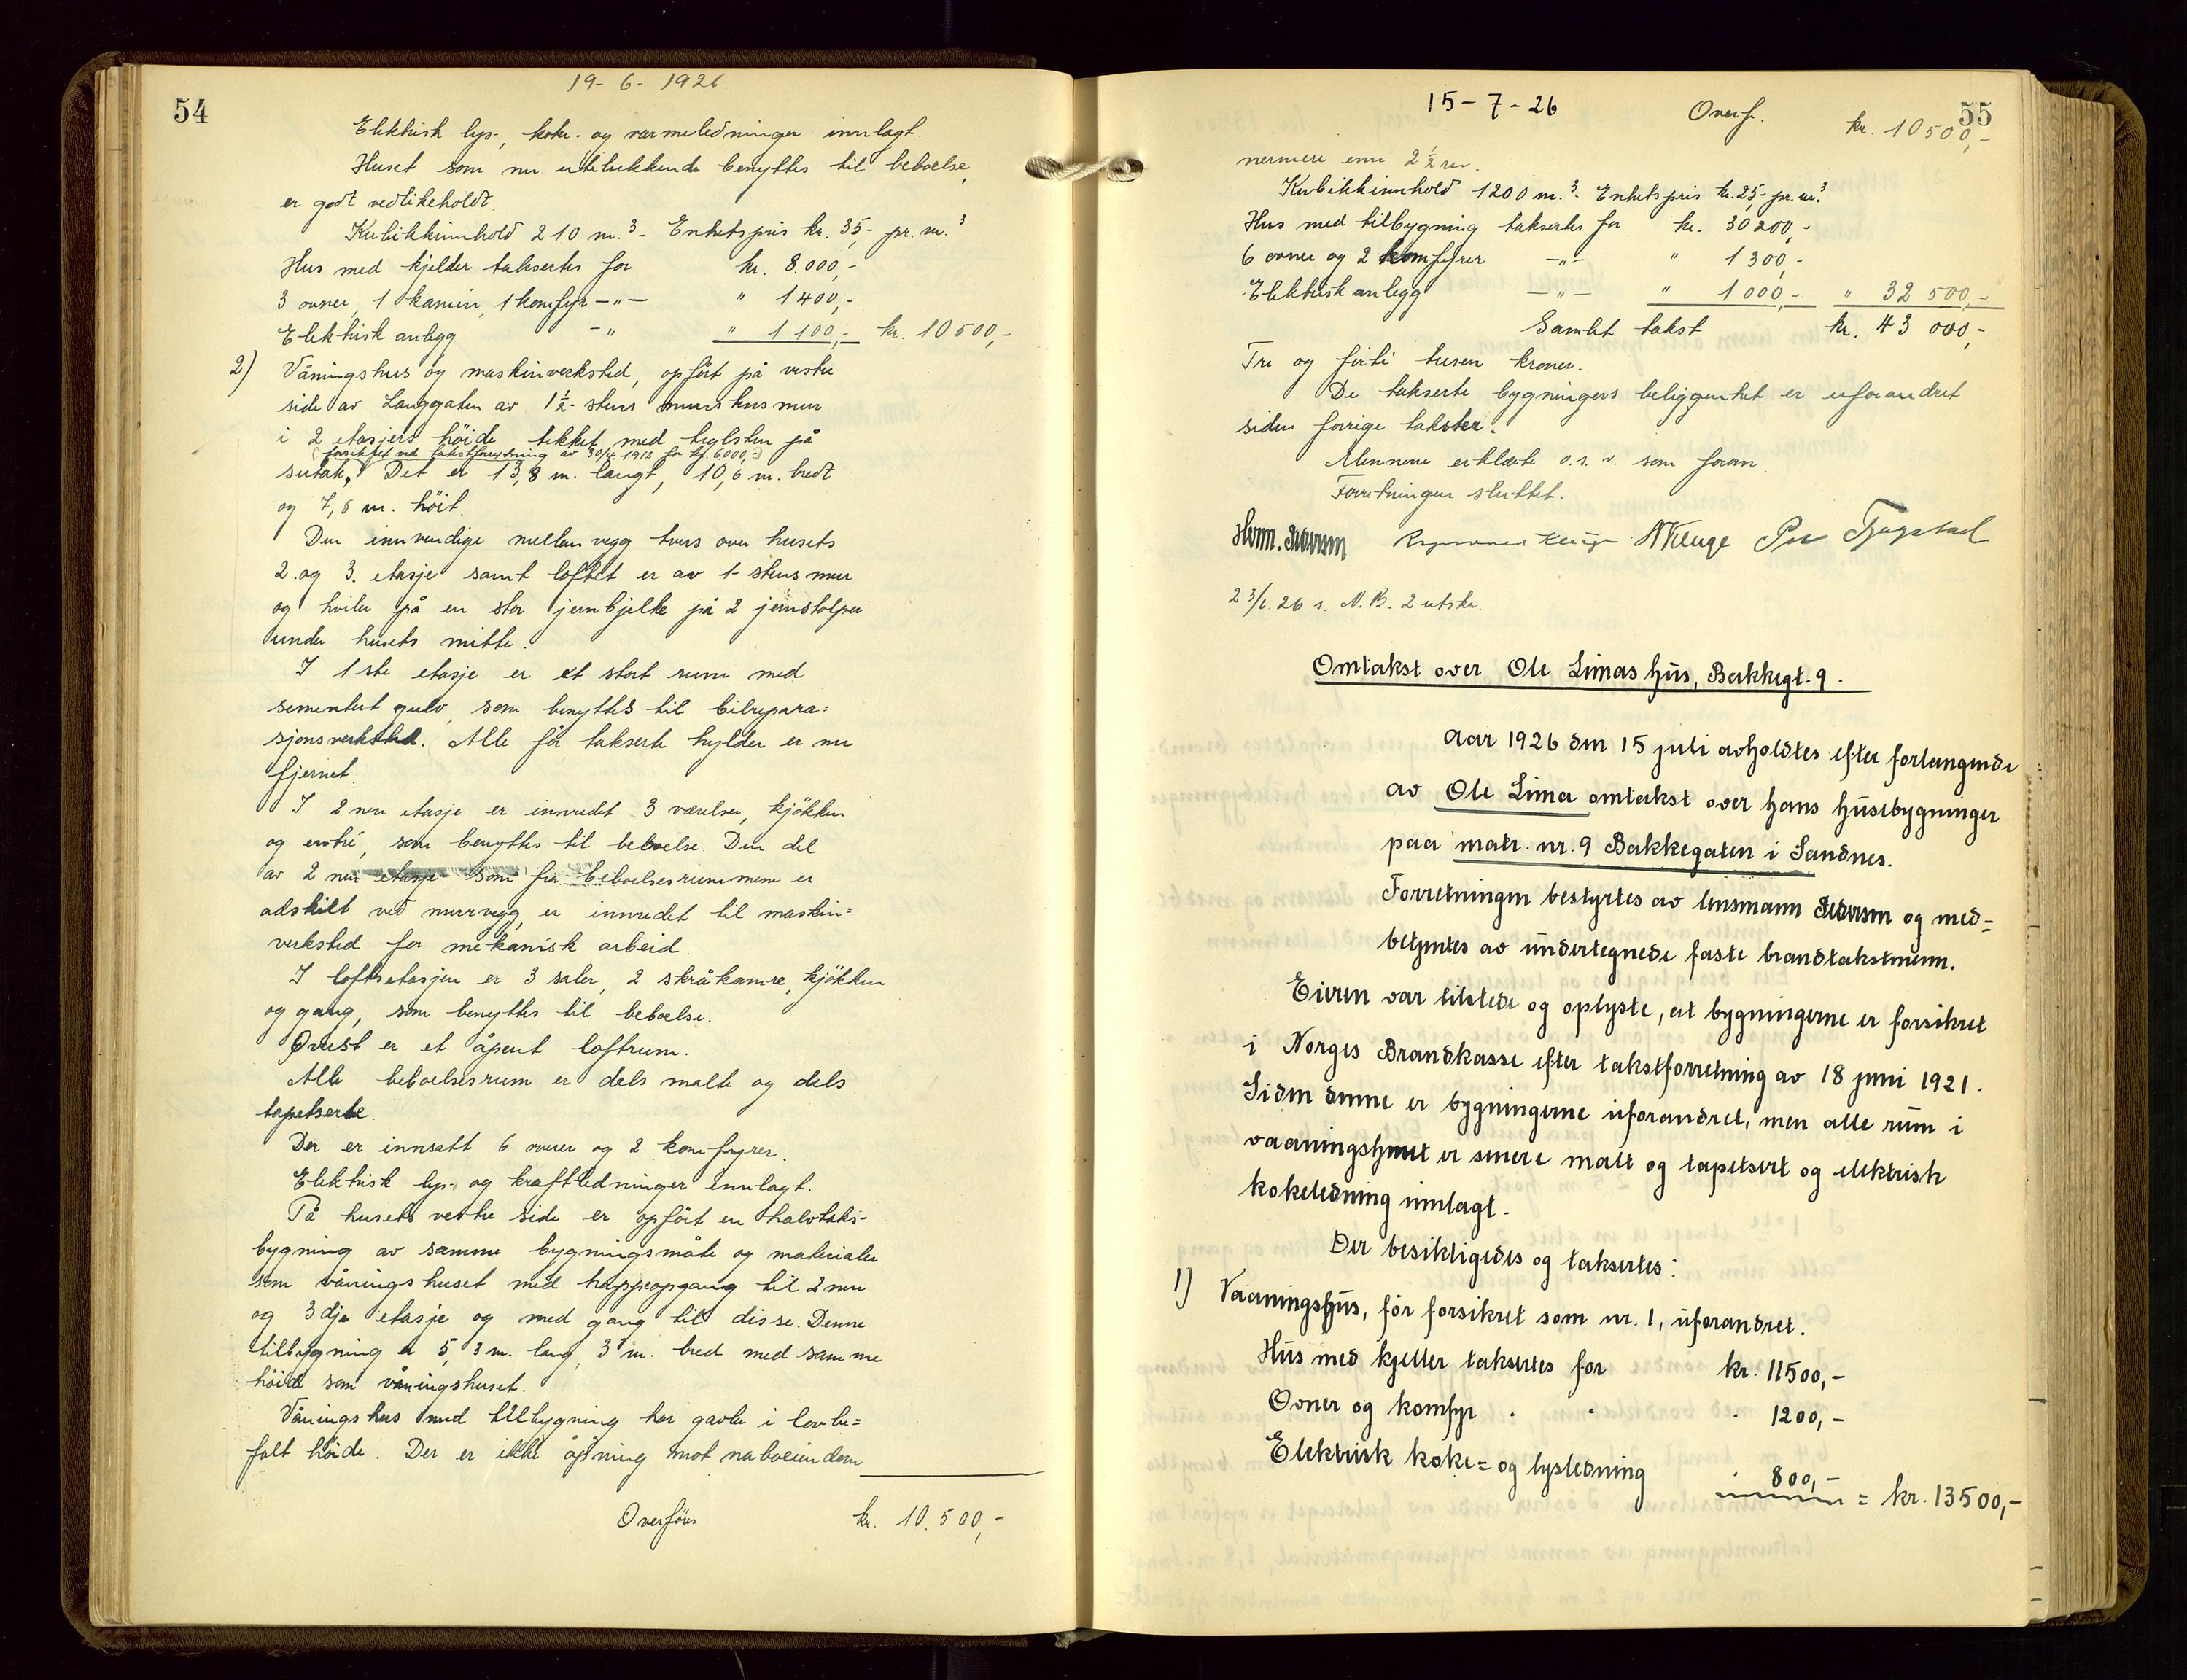 54
19-6-1926.
Elektrisk lys-, koke- og varmeledninger innlagt.
Huset som nu utelukkende benyttes til beboelse,
er godt vedlikeholdt.
Kubikkinnhold 210 m.³- Enhetspris kr. 35,- pr. m.³
Hus med kjelder takseres for kr. 8.000,-
3 ovner, 1 kamin, 1 komfyr -"- " 1400,-
Elektrisk anlegg -"- " 1100,- kr. 10500,-
2) Våningshus og maskinverksted, opført på vestre
side av Langgaten av 1½- stens murstensmur
i 2 etasjers höide tekket med teglsten på
(forsikret ved takstforretning av 30/4 1912 for kr. 6000,-)
sutak. Det er 13,8 m. langt, 10,6 m. bredt
og 7,5 m. höit.
Den innvendige mellemvegg tvers over husets
2. og 3. etasje samt loftet er av 1- stens mur
og hviler på en stor jernbjelke på 2 jernstolper
under husets mitte.
I 1ste etasje er et stort rum med
sementert gulv, som benyttes til bilrepara=
sjonsverksted. Alle för takserte hylder er nu
fjernet.
I 2nen etasje er innredet 3 værelser, kjökken
og entré, som benyttes til beboelse. Den del
av 2nen etasje som fra beboelsesrummene er
adskilt ved murvegg, er innredet til maskin=
verksted for mekanisk arbeid.
I loftsetasjen er 3 saler, 2 skråkamre, kjökken
og gang, som benyttes til beboelse.
Øverst er et åpent loftrum.
Alle beboelsesrum er dels malte og dels
tapetserte.
Der er innsatt 6 ovner og 2 komfyrer.
Elektrisk lys- og kraftledninger innlagt.
På husets vestre side er opfört en halvtaks-
bygning av samme bygningsmåte og materialer
som våningshuset med trappeopgang til 2nen
og 3dje etasje og med gang til disse. Denne
tilbygning er 5,3 m. lang, 3 m. bred med samme
höide som våningshuset.
Våningshus med tilbygning har gavle i lovbe=
falt höide. Der er ikke åpning mot naboeiendom
Overföres kr. 10.500,-
55
15-7-26
Overf. kr. 10500,-
nermere enn 2½ m.
Kubikkinnhold 1200 m.³. Enhetspris kr. 25,- pr. m.³
Hus med tilbygning takseres for kr. 30200,-
6 ovner og 2 komfyrer -"- " 1300,-
Elektrisk anlegg -"- " 1000,- " 32500,-
Samlet takst kr. 43000,-
Tre og förti tusen kroner.
De takserte bygningers beliggenhet er uforandret
siden forrige takster.
Mennene erklærte o.s.v. som foran.
Forretningen sluttet.
Herm. Pedersen Kluge Per Tjagstad
23/6. 26 s. N.B. 2 utskr.
Omtakst over Ole Limas hus, Bakkegt. 9.
Aar 1926 den 15 juli avholdtes efter forlangende
av Ole Lima omtakst over hans husebygninger
paa matr. nr. 9 Bakkegaten i Sandnes.
Forretningen bestyrtes av lensmann Pedersen og med=
betjentes av undertegnede faste brandtakstmenn.
Eieren var tilstede og oplyste, at bygningerne er forsikret
i Norges Brandkasse efter takstforretning av 18 juni 1921.
Siden denne er bygningerne uforandret, men alle rum i
vaaningshuset er senere malt og tapetsert og elektrisk
kokeledning innlagt.
Der besiktigedes og taksertes:
1) Vaaningshus, för forsikret som nr. 1, uforandret.
Hus med kjeller taksertes for kr. 11500,-
Ovner og komfyr . . . 1200,-
Elektrisk koke= og lysledning . 800,- = kr. 13500,-